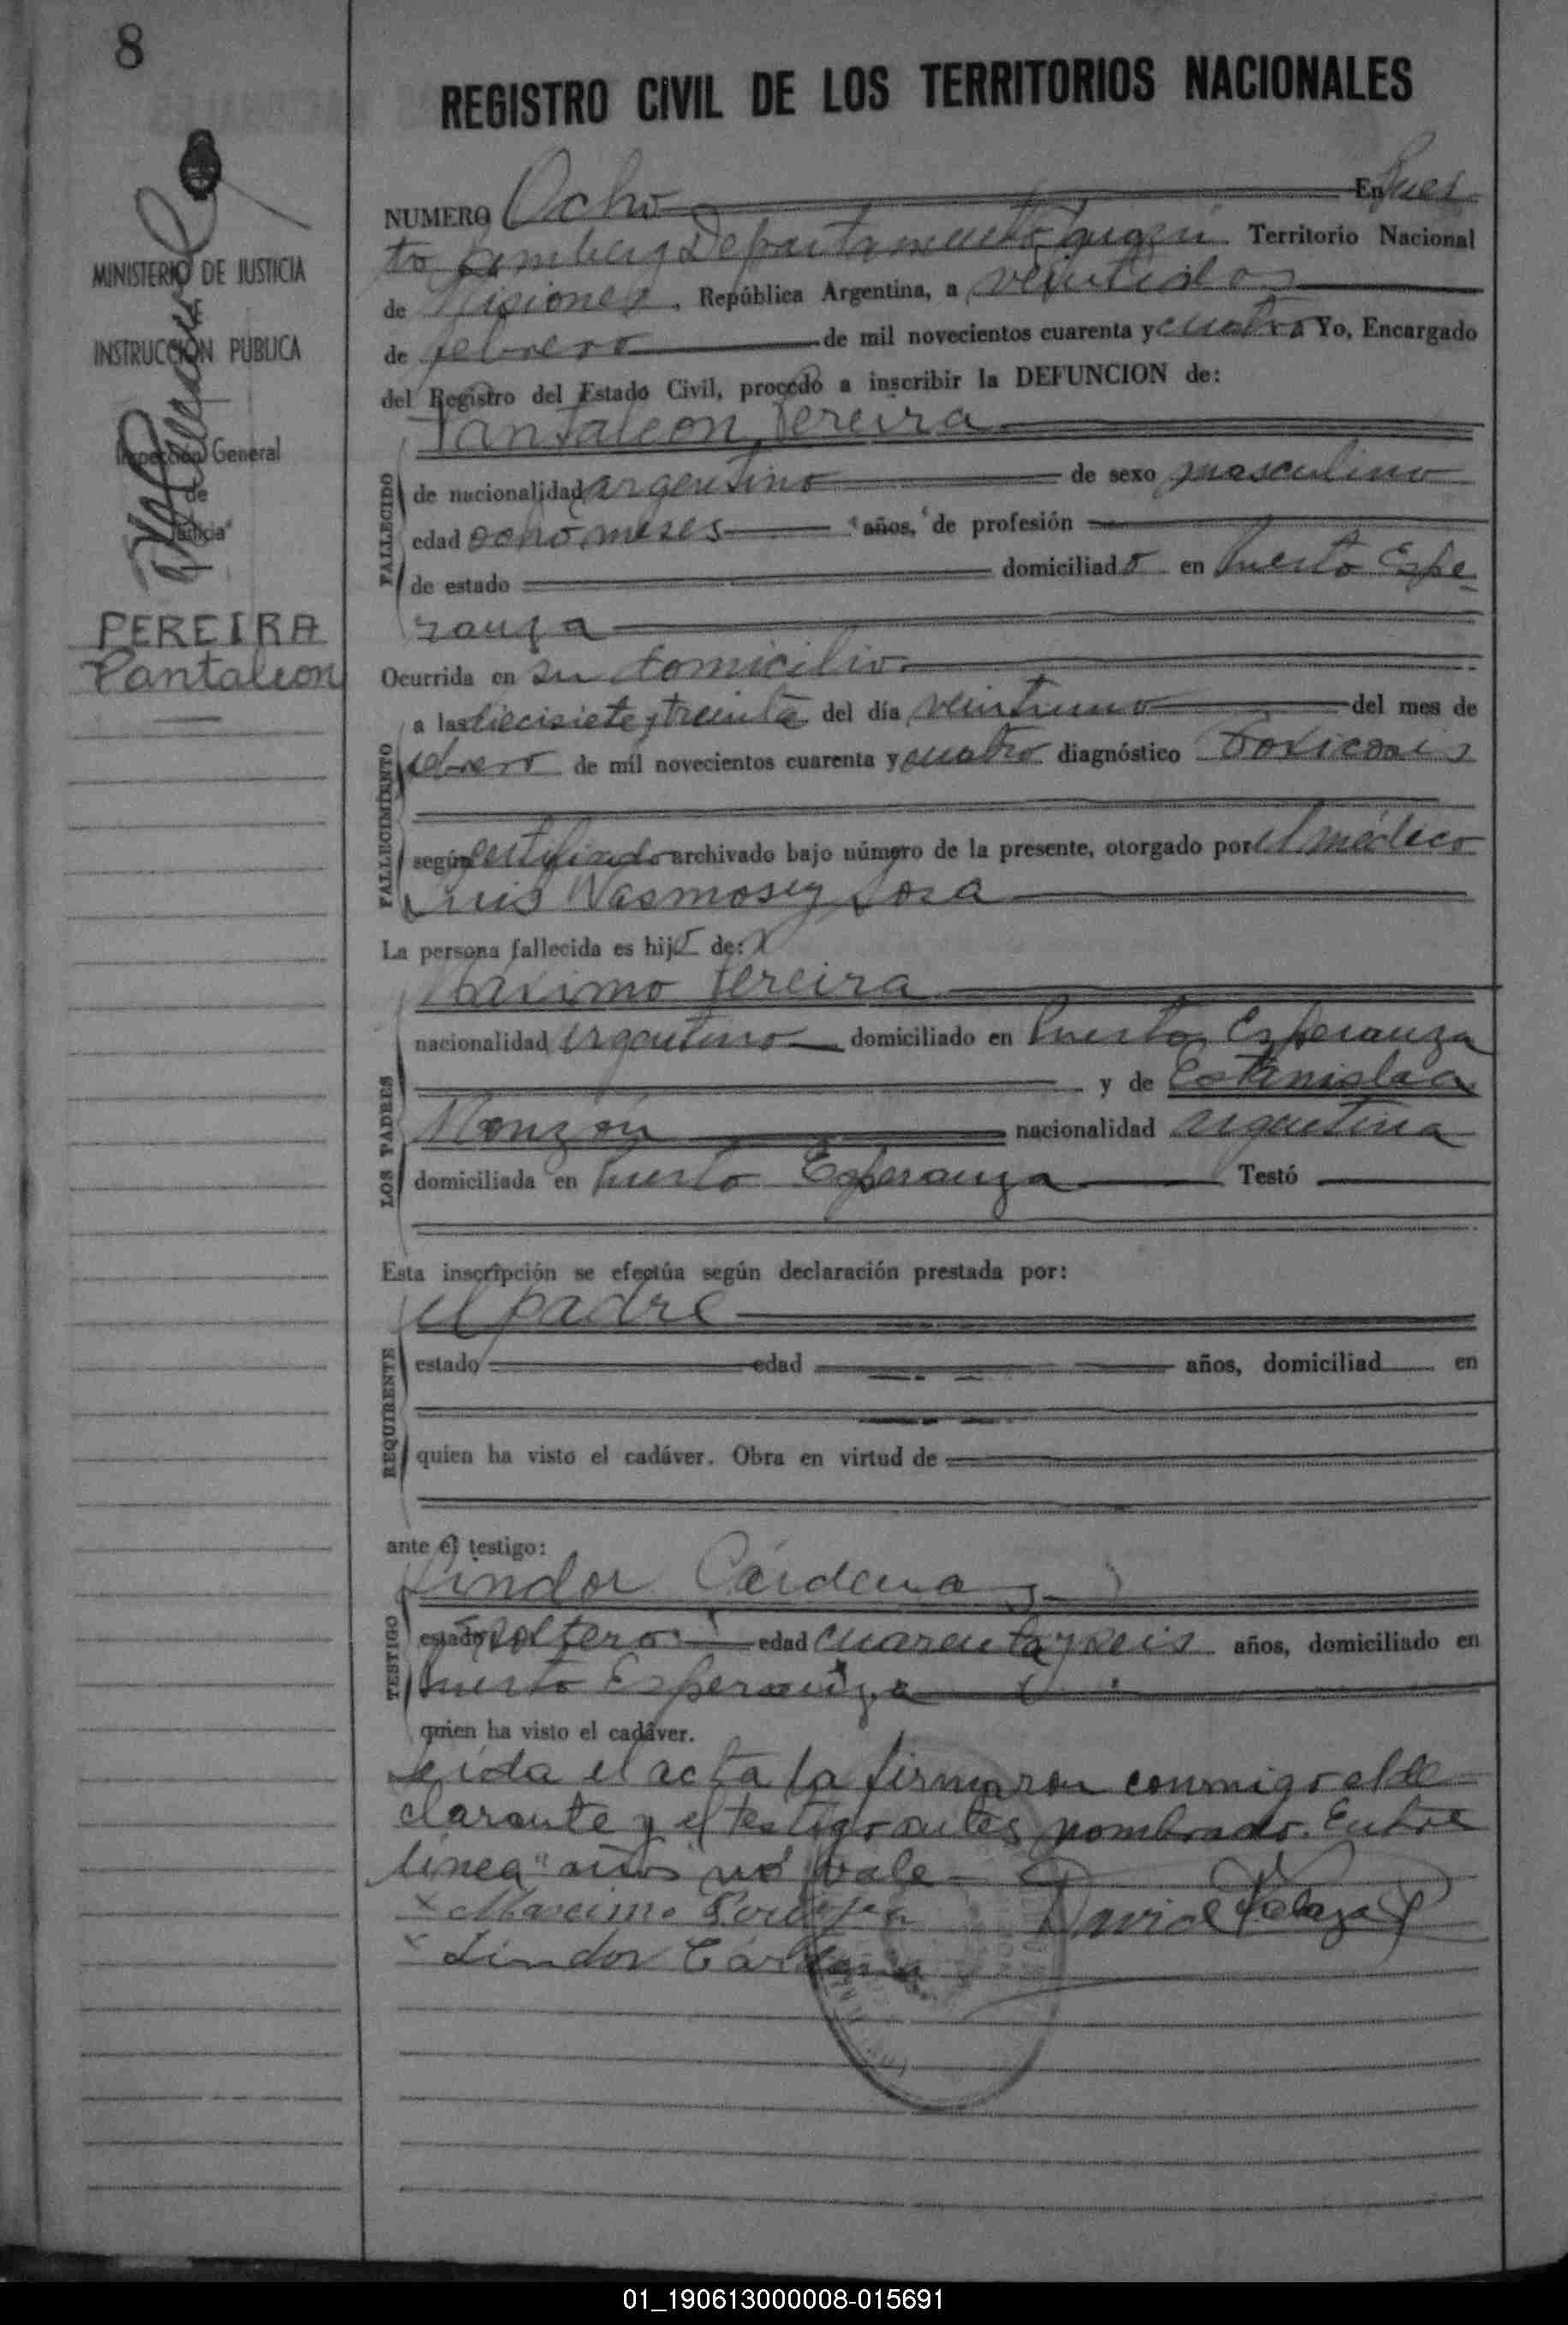 8
REGISTRO CIVIL DE LOS TERRITORIOS NACIONALES
MINISTERIO DE JUSTICIA
E
INSTRUCCION PUBLICA
Inspección General
de
Justicia
PEREIRA
Pantaleon
NUMERO Ocho En Puer
to Bemberg Departamento Iguazú Territorio Nacional
de Misiones, República Argentina, a veintidos
de febrero de mil novecientos cuarenta y cuatro Yo, Encargado
del Registro del Estado Civil, procedo a inscribir la DEFUNCION de:
Pantaleon Pereira
FALLECIDO
de nacionalidad argentino de sexo masculino
edad ocho meses "años," de profesión
de estado domiciliado en Puerto Espe-
ranza
Ocurrida en su domicilio
FALLECIMIENTO
a las diecisiete y treinta del día veintiuno del mes de
febrero de mil novecientos cuarenta y cuatro diagnóstico Toxicosis
según certificado archivado bajo número de la presente, otorgado por el médico
Luis Wasmosey Sosa
La persona fallecida es hijo de:
Máximo Pereira
LOS PADRES
nacionalidad argentino domiciliado en Puerto Esperanza
y de Estanislaa
Monzón nacionalidad argentina
domiciliada en Puerto Esperanza Testó
Esta inscripción se efectúa según declaración prestada por:
el padre
REQUIRENTE
estado edad años, domiciliad en
quien ha visto el cadáver. Obra en virtud de
ante el testigo:
Lindor Cárdena
TESTIGO
estado soltero edad cuarenta y seis años, domiciliado en
Puerto Esperanza
quien ha visto el cadáver.
Leída el acta la firmaron conmigo el de
clarante y el testigo antes nombrado. Entre
línea "años" no vale
x Maximo Pereira David
x Lindor Cárdena
01_190613000008-015691